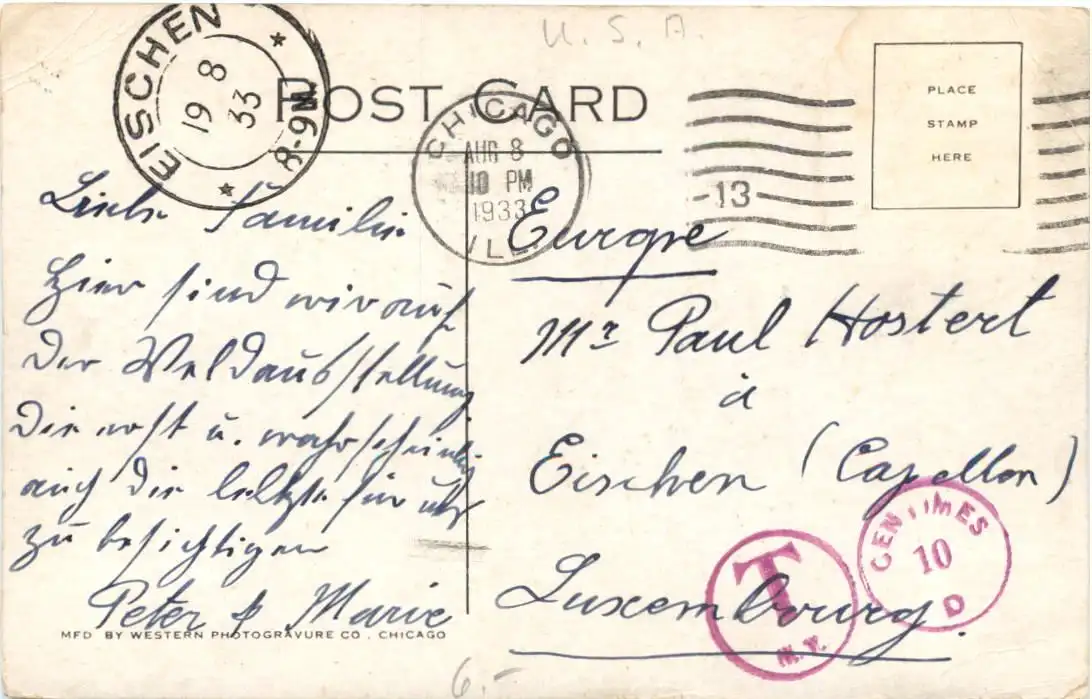 U. S. A.
EISCHEN
19 8
33
8-9M
POST CARD
CHICAGO
AUG 8
10 PM
1933
ILL.
-13-
PLACE
STAMP
HERE
Liebe Familie
Hier sind wir auf
der Weldausstellung
die erst u. wahrscheinlich
auch die letzte für uns
zu besichtigen
Peter & Marie
Europe
Mr Paul Hostert
à
Eischen (Capellen)
Luxembourg.
CENTIMES
10
D
T
N.Y.
MFD BY WESTERN PHOTOGRAVURE CO. CHICAGO
6.-